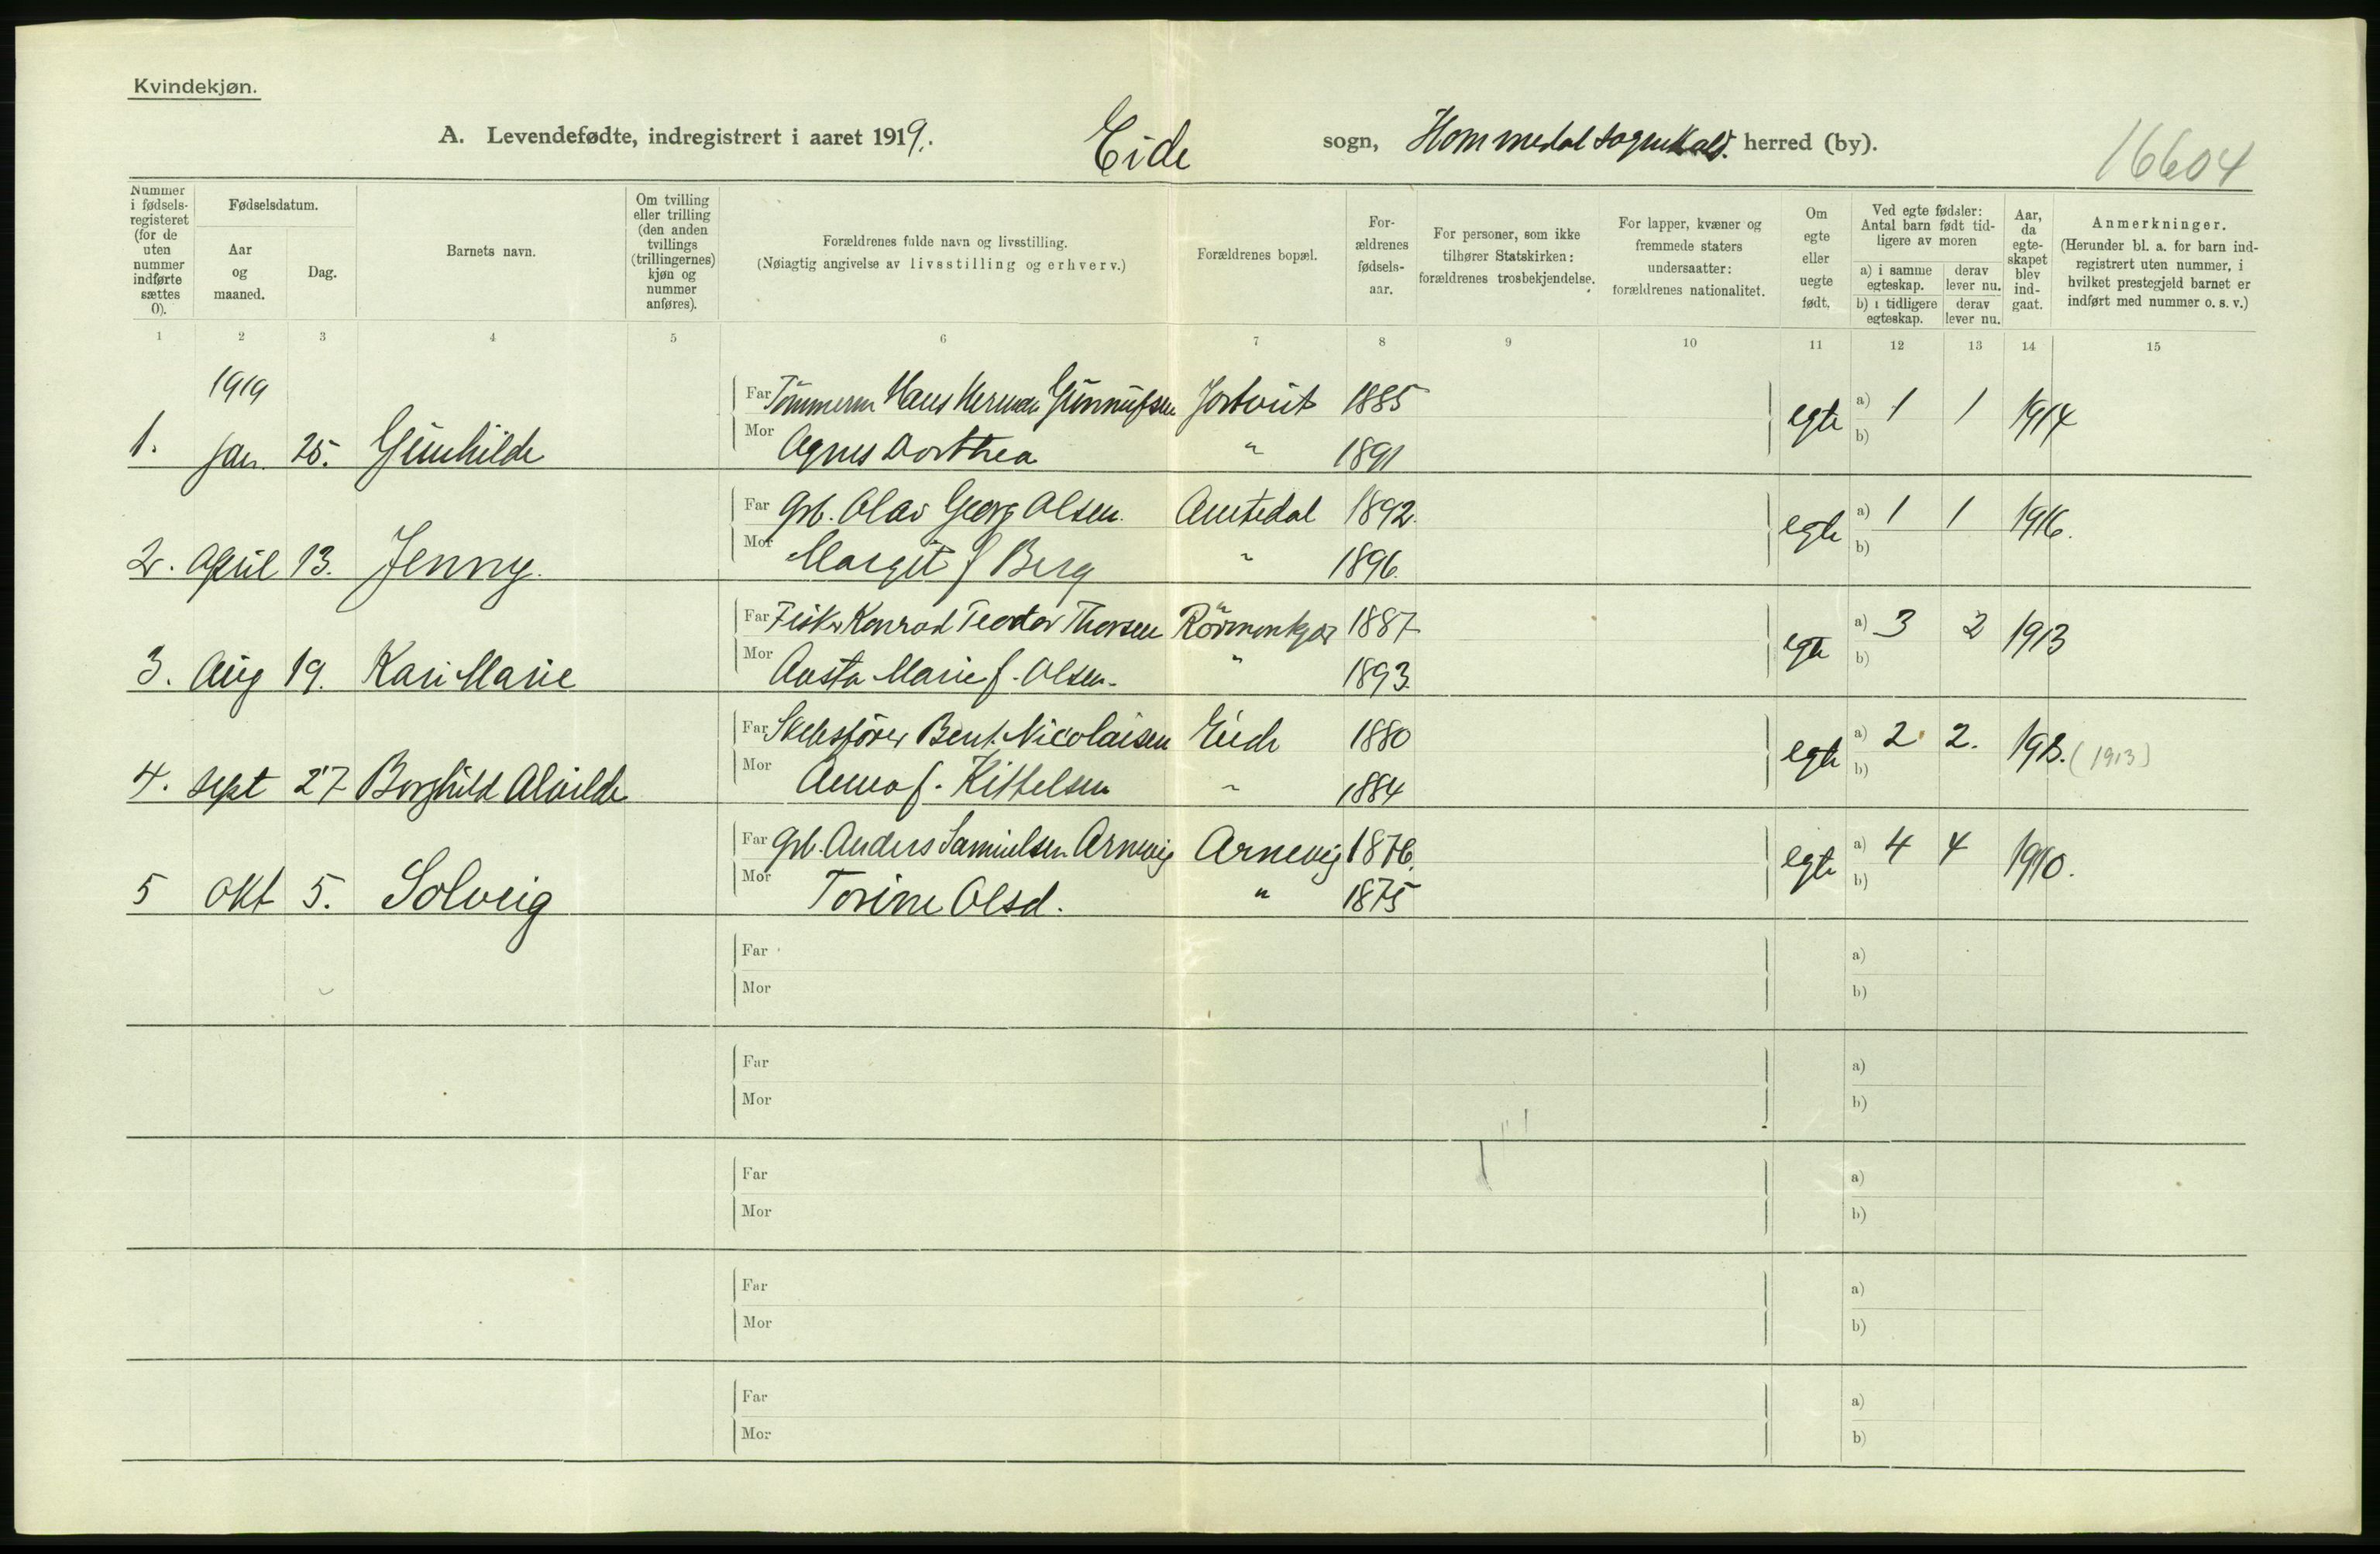 Kvindekjøn.
A. Levendefødte, indregistrert i aaret 1919. Eide sogn, Hommedal sognekald. herred (by). 16604
Nummer i fødselsregisteret (for de uten nummer indførte sættes 0).
Fødselsdatum.
Aar og maaned.
Dag.
Barnets navn.
Om tvilling eller trilling (den anden tvillings (trillingernes) kjøn og nummer anføres).
Forældrenes fulde navn og livsstilling.
(Nøiagtig angivelse av livsstilling og erhverv.)
Forældrenes bopæl.
For-
ældrenes
fødsels-
aar.
For personer, som ikke
tilhører Statskirken:
forældrenes trosbekjendelse.
For lapper, kvæner og
fremmede staters
undersaatter:
forældrenes nationalitet.
Om
egte
eller
uegte
født.
Ved egte fødsler:
Antal barn født tid-
ligere av moren
a) i samme egteskap.
derav lever nu.
b) i tidligere egteskap.
derav lever nu.
Aar,
da
egte-
skapet
blev
ind-
gaat.
Anmerkninger.
(Herunder bl. a. for barn ind-
registrert uten nummer, i
hvilket prestegjeld barnet er
indført med nummer o. s. v.)
1 2 3 4 5 6 7 8 9 10 11 12 13 14 15
1919
Far Tömmerm Hans Herman Gunnufsen Jortveit 1885 egte a) 1 1 1914
1. Jan. 25. Gunhilde Mor Agnes Dorthea " 1891 b)
Far Grb. Olav Georg Olsen. Amtedal 1892. egte a) 1 1 1916.
2. April 13. Jenny. Mor Margit f Berg " 1896. b)
Far Fisker Konrad Teodor Thorsen 1887 egte a) 3 2 1913
3. Aug 19. Kari Marie Mor Austa Marie f. Olsen. " 1893. b)
Far Skibsfører Bent Nicolaisen Eide 1880 egte a) 2 2. 1913. (1913)
4. Sept 27 Borghild Alvilde Mor Anna f. Kittelsen " 1884 b)
Far Grb. Anders Samuelsen Arnevig Arnevig 1876. egte a) 4 4 1910.
5 Okt 5. Solveig Mor Torine Olsd. " 1875 b)
Far a)
Mor b)
Far a)
Mor b)
Far a)
Mor b)
Far a)
Mor b)
Far a)
Mor b)